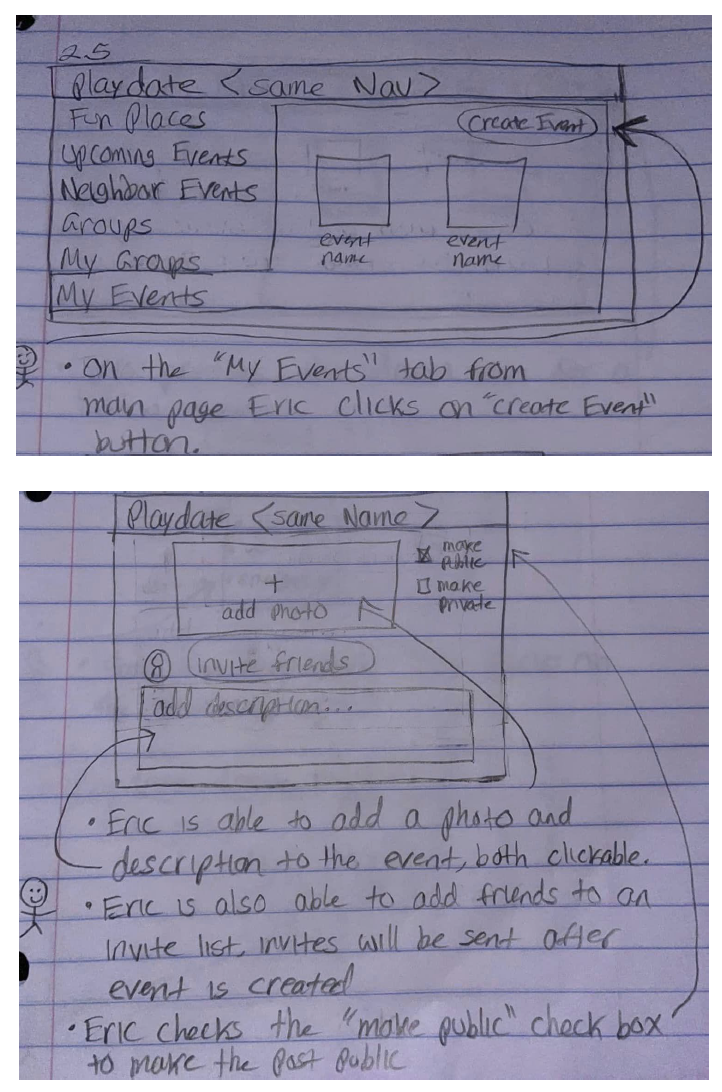 2.5
Playdate <same Nav>
Fun Places
Create Event
Upcoming Events
Neighbor Events
Groups
event name
event name
My Groups
My Events
• On the "My Events" tab from
main page Eric clicks on "create Event"
button.
Playdate <same Name>
make
public
+
add photo
make
private
invite friends
add description...
• Eric is able to add a photo and
description to the event, both clickable.
• Eric is also able to add friends to an
invite list, invites will be sent after
event is created
• Eric checks the "make public" check box
to make the post public